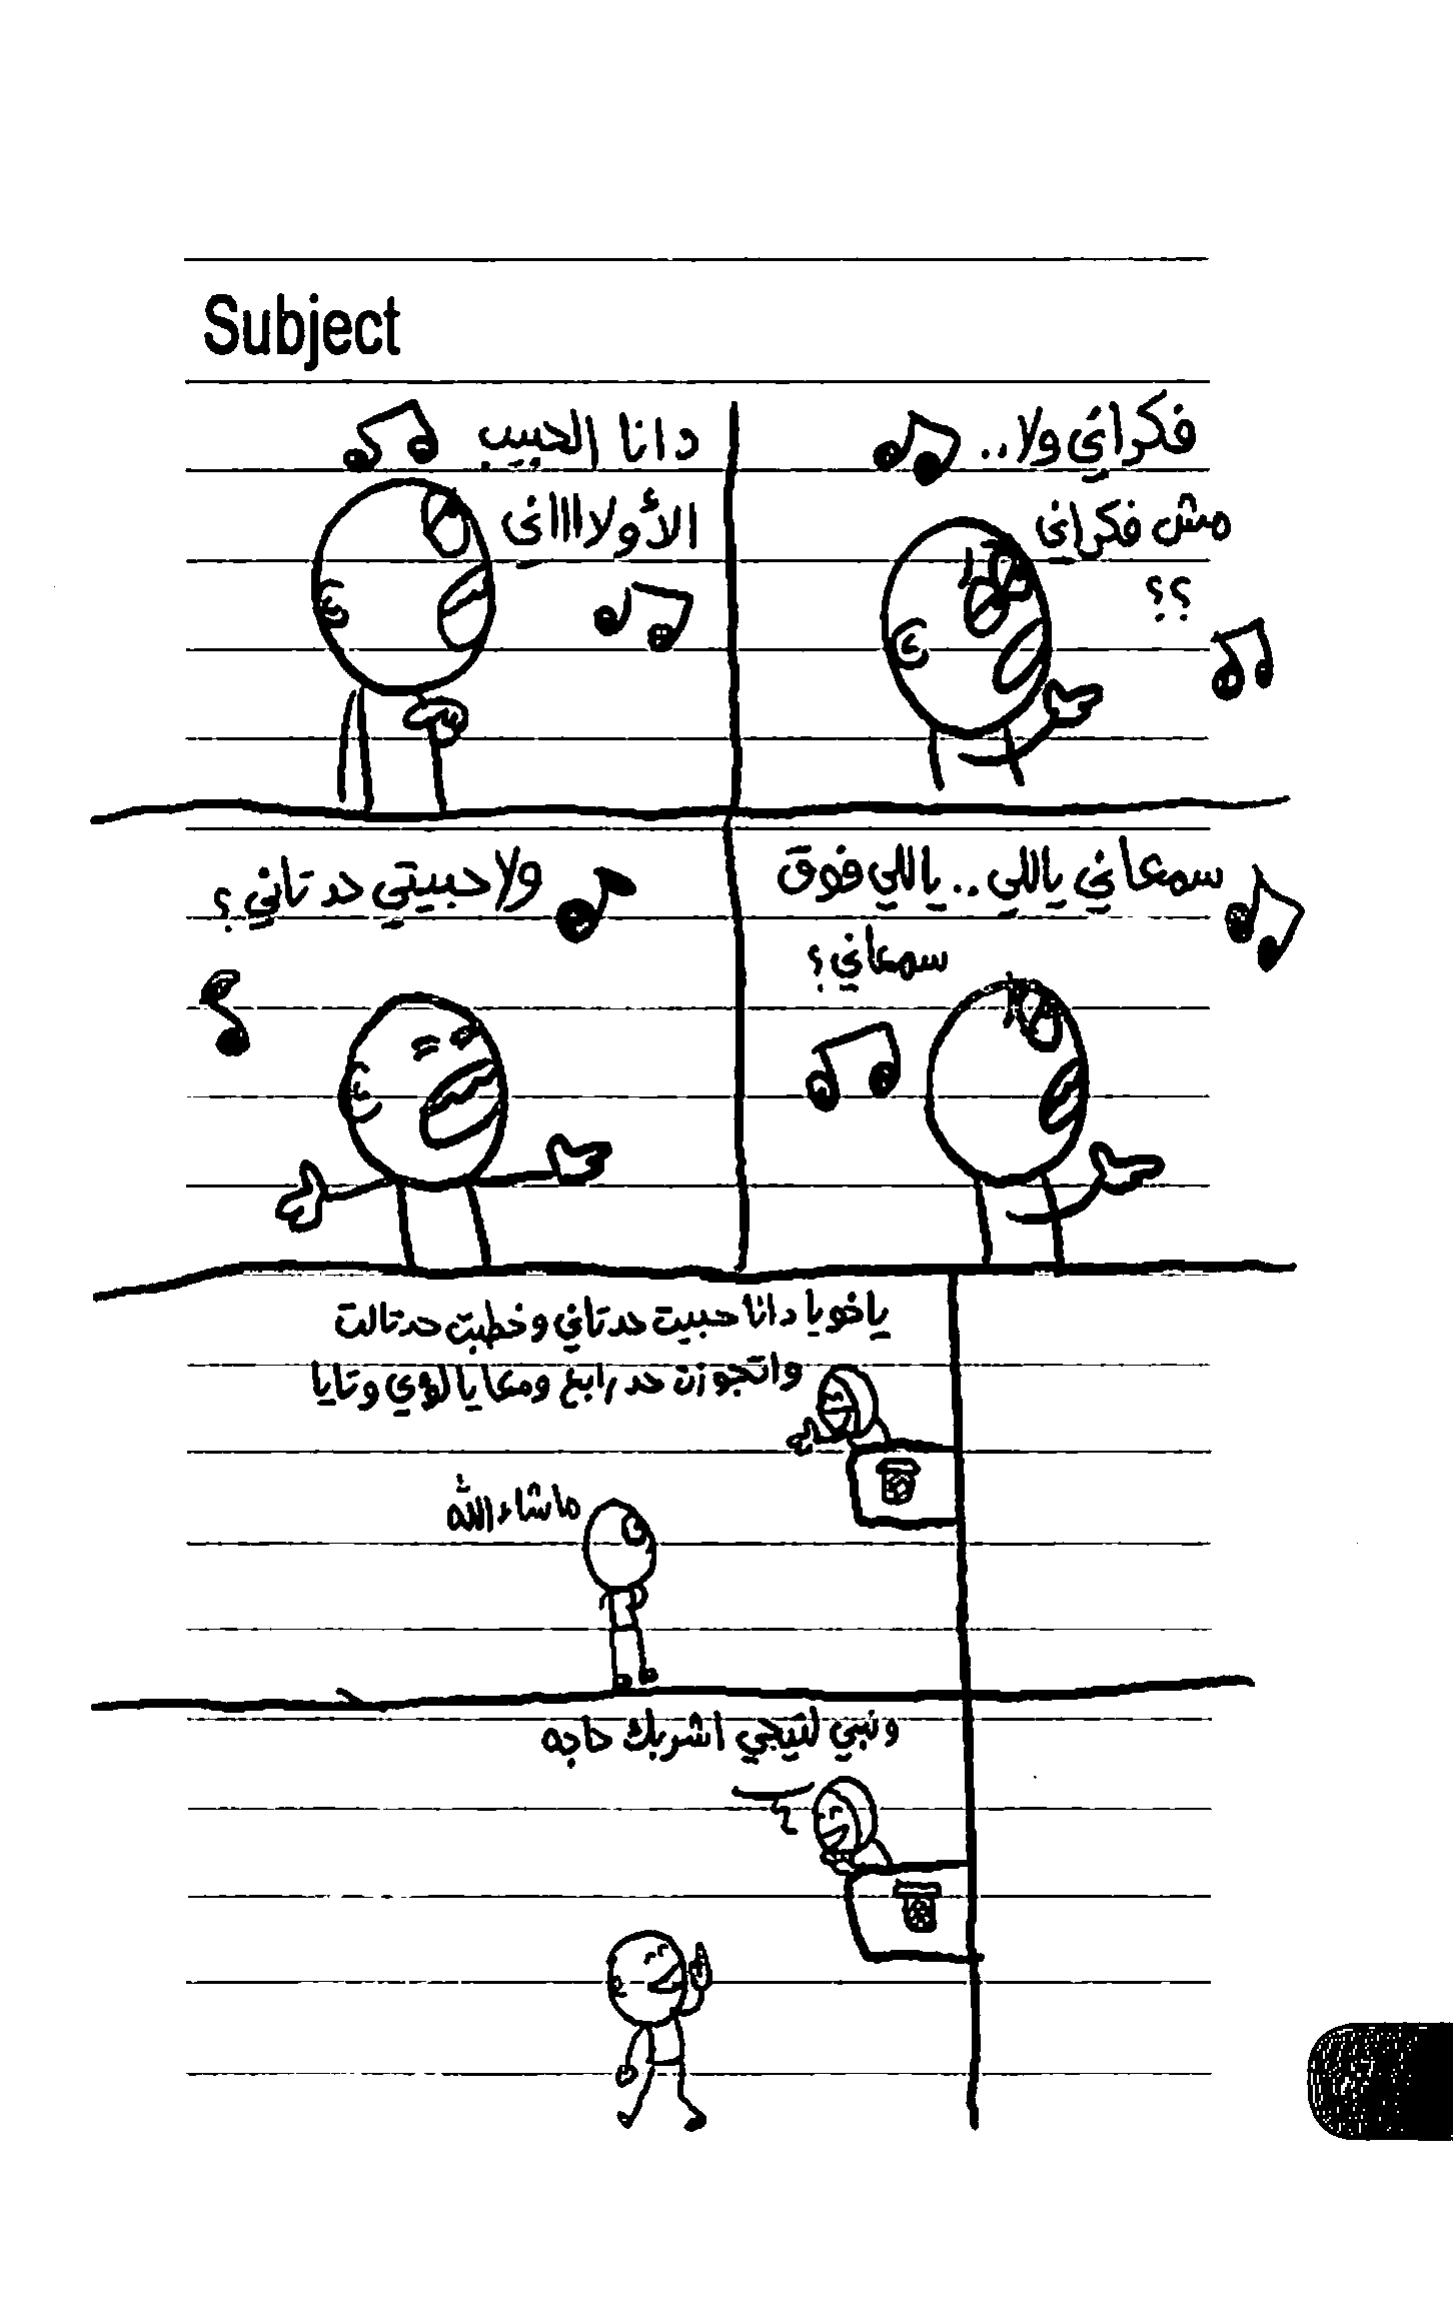 Subject
فكراني ولا..
مش فكراني
؟؟
دانا الحبيب
الأولااااني
سمعاني ياللي.. ياللي فوق
سمعاني؟
ولا حبيتي حد تاني؟
ياخويا دانا حبيت حد تاني وخطبت حد تالت
واتجوزت حد رابع ومعايا لؤي وتايا
ماشاء الله
ونبي لتيجي اشربك حاجه